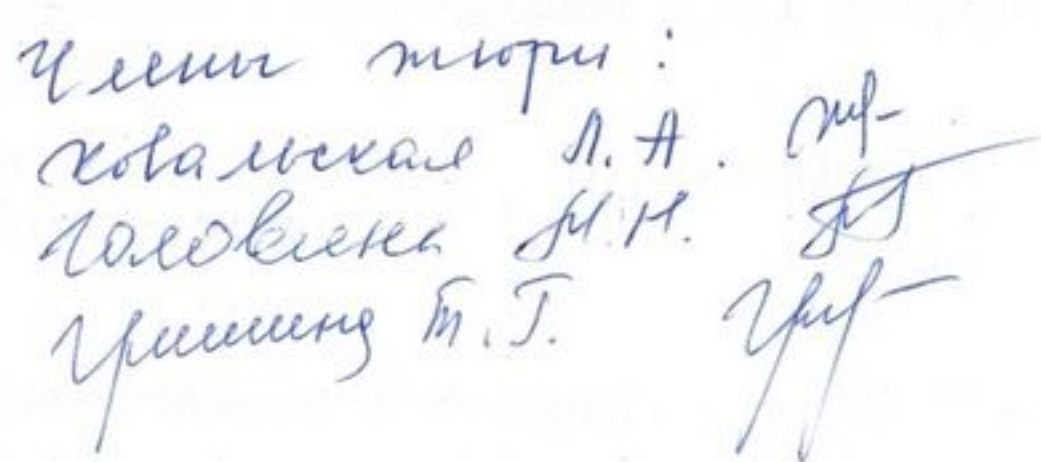 Члены жюри:
Ковальская Л.А.
Головина Н.Н.
Гришина Т.Г.